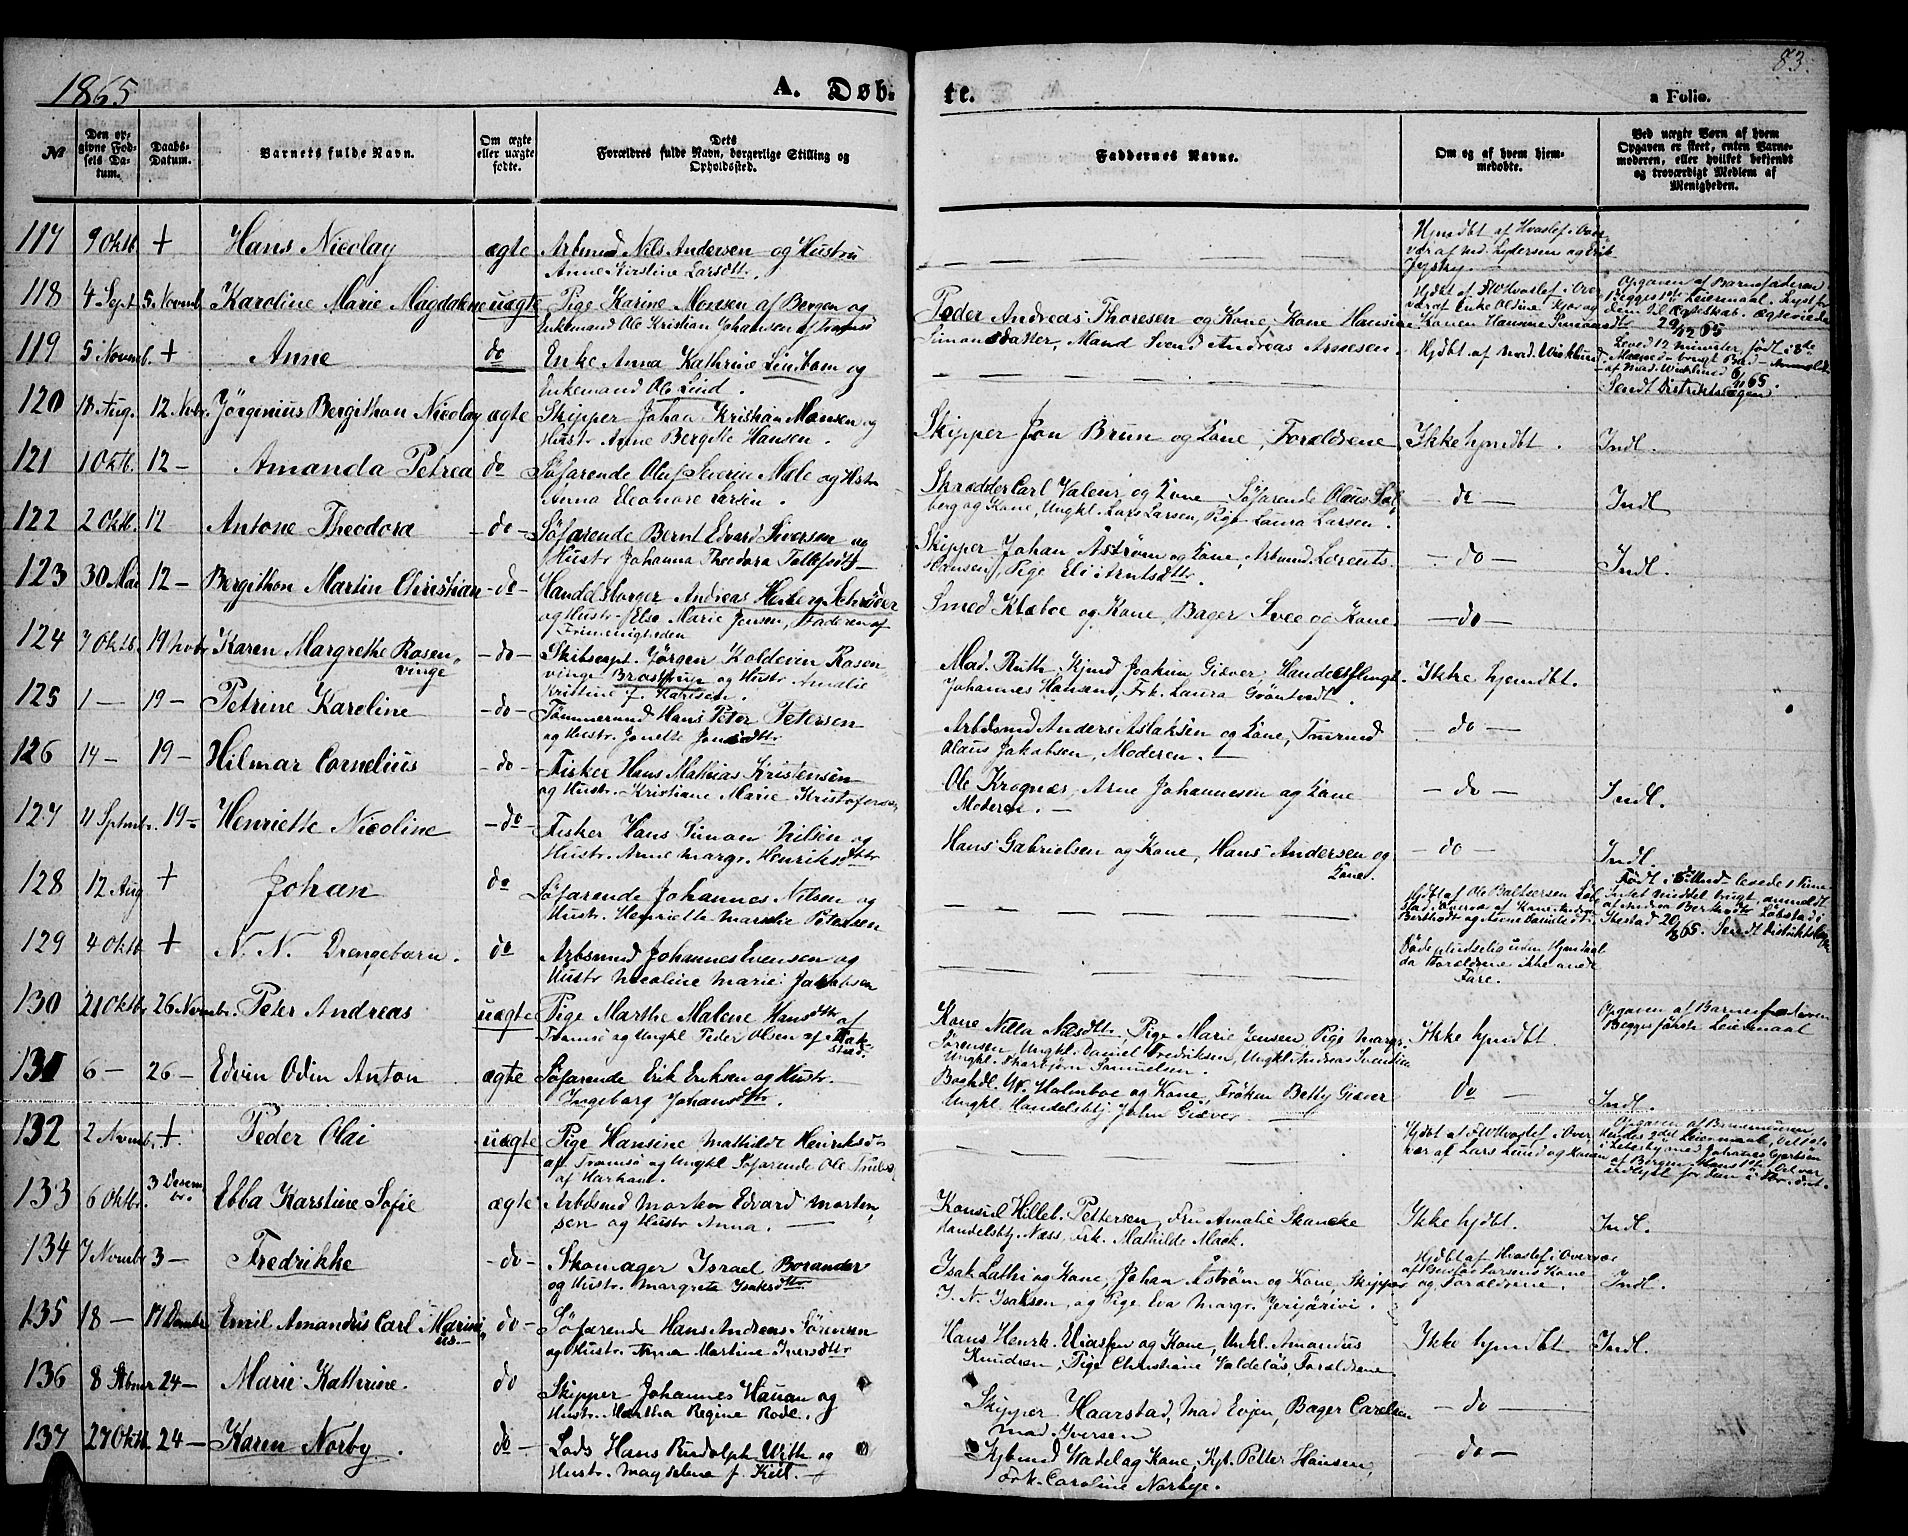 1865
A. Døb-
te.
83.
a Folio.
№
Den op-
givne Fød-
sels Da-
tum.
Daabs-
Datum.
Barnets fulde Navn.
Om ægte
eller uægte
fødte.
Dets
Forældres fulde Navn, borgerlige Stilling og
Opholdssted.
Faddernes Navne.
Om og af hvem hjem-
medøbte.
Ved uægte Børn af hvem
Opgaven er skeet, enten Barne-
moderen, eller hvilket bekjendt
og troværdigt Medlem af
Menigheden.
117 9 Oktb + Hans Nicolay ægte Arbmnd Nils Andersen og Hustru
Anne Kirstine Larsdtt.
Hjmdbt af Hvoslef i Over
vær af md. Lydersen og Erik
118 4 Sept 5 Novmb. Karoline Marie Magdalene uægte Pige Karine Monsen af Bergen og
Enkemand Ole Kristian Johansen af Tromsø
Foder Andreas Thoresen og Kone, Kone Hansine
Simonsdatter, Mand Svend Andreas Arnesen.
Hjdbt af Hvoslef i Over
vær af Enke Olsine Kjos og
Konen Hanne Simonsdtr
Opgaven af Barnefaderen
Begges 1ste Leiermaal. Lyst for
dem til Ægteskab.
119 5 Novmb. + Anne do Enke Anna Kathrine Lindbom og
Enkemand Ole Lind.
Hjdbt af Mad. Wicklund
Leved 12 minutter, født i 8de
Maaned
af Mad. Wicklund 6/11 65.
Sendt Distriktslægen
120 18 Aug. 12 Nobr. Jørginius Bergithon Nicolay ægte Skipper Johan Kristian Monsen og
Hustr. Anne Bergitte Hansen.
Skipper Jon Brun og Kone, Forældrene
Ikke hjmdbt. Indl.
121 1 Oktb. 12 — Amanda Petrea do Søfarende Oluf Severin Møle og Hstr
Anna Eleonore Larsen.
Skrædder Carl Valeur og Kone, Søfarende Olaus Sol
berg og Kone, Ungkl. Lars Larsen, Pige Laura Larsen.
— do — Indl
122 2 Oktb. 12 Antone Theodora — do — Søfarende Bernt Edvard Siversen og
Hustr Johanna Theodora Tollefsdtr
Skipper Johan Åstrøm og Kone, Arbmnd Lorents
Hansen, Pige Eli Arntsdttr.
— do — Indl.
123 30 Mai 12 — Bergithon Martin Christian — do — Handelsborger Andreas Heiberg Schrøder
og Hustr. Else Marie Jensen, Faderen af
Frimenigheden
Smed Klæboe og Kone, Bager Svee og Kone.
— do —
124 7 Oktb. 19 Nobr Karen Margrethe Rosen
vinge — do — Skibscapt. Jørgen Koldevin Rosen
vinge Brostrup og Hustr. Amalie
Kristine f. Hansen.
Mad. Ruth, Kjmd Joakim Giæver, Handelsflmgt.
Johannes Hansen, Frk. Laura Grøntvedt.
Ikke hjemdbt.
125 1 — 19 — Petrine Karoline — do — Tømmermnd Hans Peter Petersen
og Hustr. Jonette Jonsdttr
Arbdsmd Anders Aslaksen og Kone, Tmrmd
Olaus Jakobsen, Moderen.
— do —
126 14 — 19 — Hilmar Cornelius — do — Fisker Hans Mathias Kristensen
og Hustr. Kristiane Marie Kristofersen
Ole Krognæs, Arne Johannesen og Kone
Moderen.
— do — Indl.
127 11 Septmbr. 19 — Henriette Nicoline — do — Fisker Hans Simon Nilsen og
Hustr. Anne Margr. Henriksdttr
Hans Gabrielsen og Kone, Hans Andersen og
Kone.
— do — Indl.
128 12 Aug + Johan do Søfarende Johannes Nilsen og
Hustr. Henriette Marthe Petersen
Hjdbt af Ole Baltsersen
Født i 8de Mnd — levede 1 Time
Intet Middel brugt, anmeldt
20/8 65. Sendt Distriktslæge
129 4 Oktb + N. N. Drengebarn. do Arbsmnd Johannes Evensen og
Hustr Nicoline Marie Jakobsen
Døde pludselig uden Hjemdaab
da Forældrene ikke anede
Fare.
130 21 Oktbr 26 Novmbr. Peter Andreas uægte Pige Marthe Malene Hansdttr af
Tromsø og Ungkl Peder Olsen af Mak-
stad.
Kone Nilla Nilsdttr, Pige Marie Jensen, Pige Margr.
Sørensen, Ungkl. Daniel Fredriksen, Ungkl. Andreas Svendsen
Ungkl. Thorbjørn Samuelsen.
Ikke hjmdbt
Opgaven af Barnefaderen
Begges første Leiermaal
131 6 — 26 — Edvin Odin Anton ægte Søfarende Erik Eriksen og Hustr.
Ingeborg Johansdttr.
Boghdl. W. Holmboe og Kone, Frøken Betty Giæver
Ungkl. Handelsbtj John Giæver
Do — Indl.
132 2 Novmbr. + Peder Olai uægte Pige Hansine Mathilde Henriksdtr
af Tromsø og Ungkl Søfarende Ole
af Harham.
Hjdbt af FWHvoslef i Over
vær af Lars Lund og Konen
Opgaven af Barnemoderen,
Hendes 2det Leiermaal,
133 6 Oktbr. 3 Desem
br. Ebba Karstine Sofie ægte Arbdsmd Morten Edvard Morten
sen og Hustr Anna.
Konsul Hilleb. Pettersen, Fru Amalie Skancke
Handelsbtj Næss, Frk. Mathilde Mack.
Ikke hjdbt. Indl.
134 7 Novmbr 3 — Fredrikke — do — Skomager Israel Borander
og Hustr. Margrete Isaksdttr
Isak Lathi og Kone, Johan Åstrøm og Kone, Skipper
I. N. Isaksen, og Pige Eva Margr. Jerijärivi.
Hjdbt af Hvoslef i Overvær
af Gustav Larsens Kone
og Forældrene. Indl.
135 18 — 17 Desmbr Emil Amandus Carl Marini
us do — Søfarende Hans Andreas Sørensen
og Hustr. Anna Martine Iversdttr
Hans Henrk. Eliassen og Kone, Unkl. Amandus
Knudsen, Pige Christiane Valdeløs, Forældrene
Ikke hjmdbt Indl.
136 8 24 — Marie Kathrine. do Skipper Johannes Hauan og
Hustr. Martha Regine Rode.
Skipper Haarstad, Mad Evjen, Bager Carelsen
Mad. Iversen
— do —
137 27 Oktb 24 — Karen Norby. do — Lods Hans Rudolph With og
Hustr. Magdelene f. Kiil.
Kjbmnd Wadel og Kone, Kpt. Petter Hansen,
Frk. Caroline Norbye.
— do —